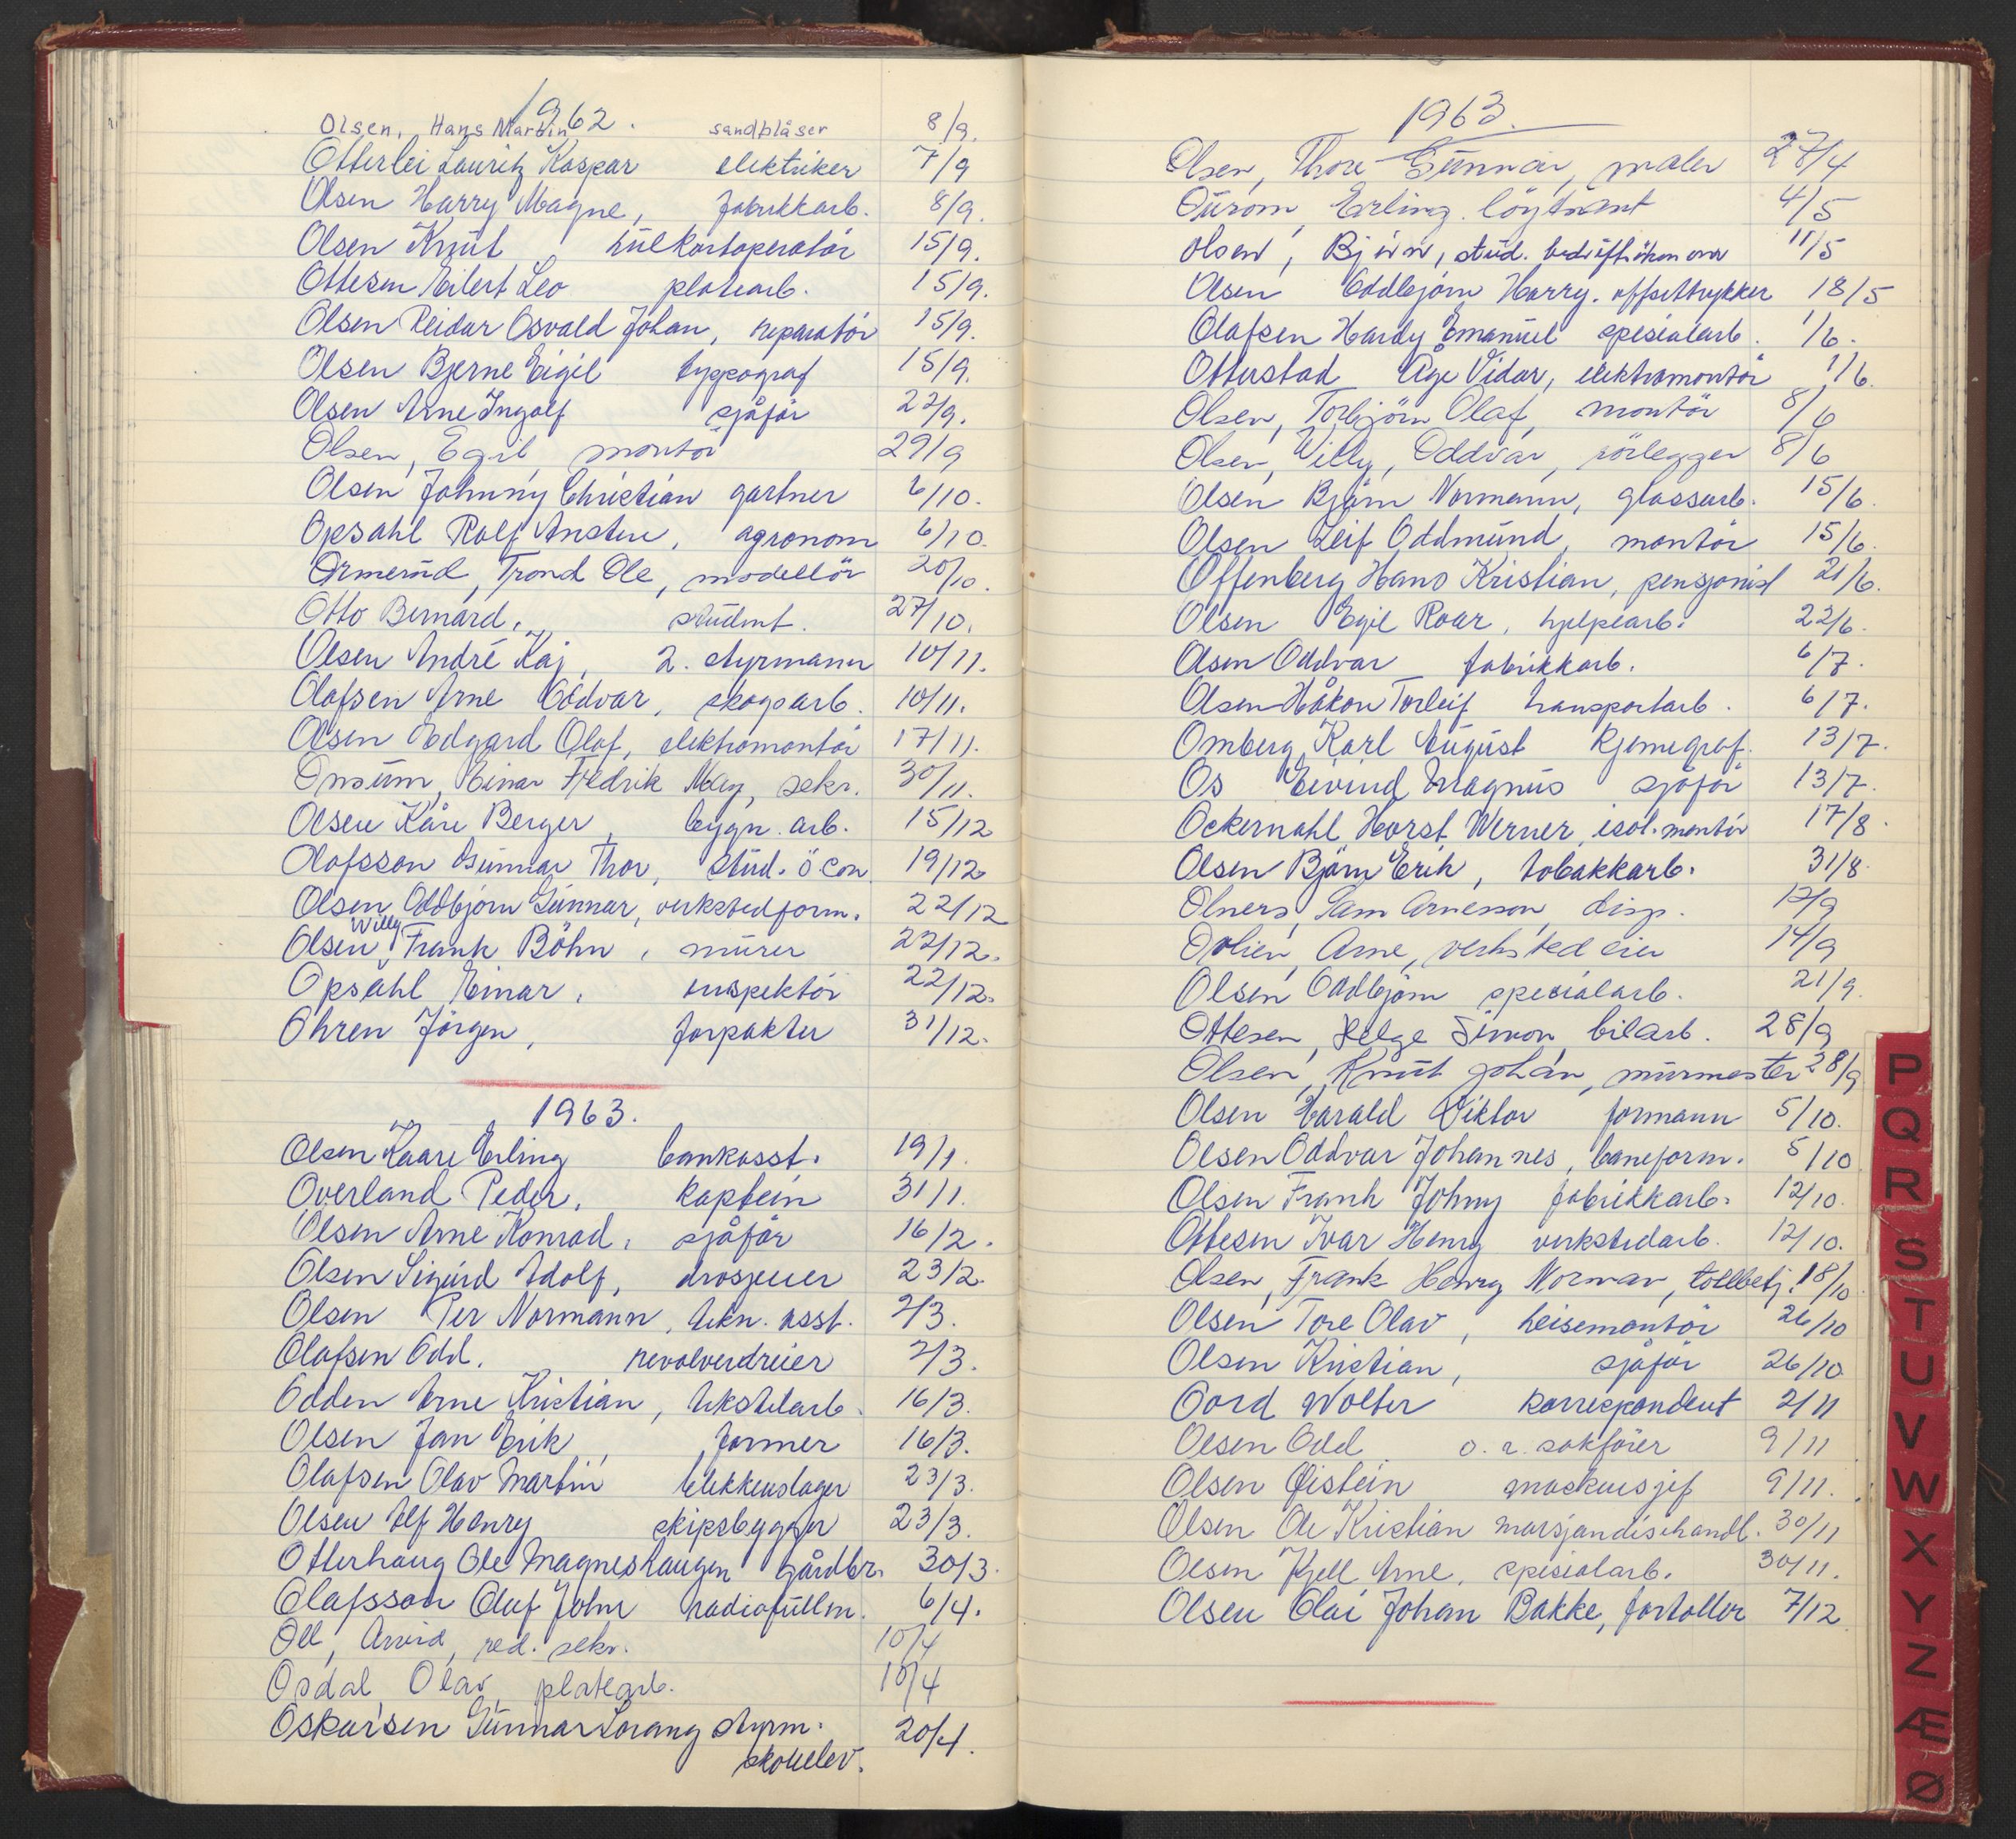 1962.
Olsen, Hans Martin sandblåser 8/9.
Otterlei Lauritz Kaspar elektriker 7/9
Olsen Harry Magne, fabrikkarb. 8/9.
Olsen Knut hullkortoperatör 15/9.
Ottesen Eilert Leo platearb. 15/9.
Olsen Reidar Osvald Johan, reparatör 15/9.
Olsen Bjerne Eigil typograf 15/9.
Olsen Arne Ingolf sjåför 22/9.
Olsen, Egil montör 29/9
Olsen Johnny Christian gartner 6/10.
Opsahl Rolf Ansten, agronom 6/10.
Ormerud, Trond Ole, modellör 20/10.
Otto Bernard, student. 27/10.
Olsen André Kaj, 2. styrmann 10/11.
Olafsen Arne Oddvar, skogsarb. 10/11.
Olsen Edgard Olaf, elektromontör 17/11.
Onsum, Einar Fredrik Mey, sekr. 30/11.
Olsen Kåre Berger, bygn. arb. 15/12
Olafsson Gunnar Thor, stud. öcon 19/12.
Olsen Oddbjörn Gunnar, verkstedform. 22/12
Olsen, Willy Frank Böhn, murer 22/12.
Opsahl Einar, inspektör 22/12.
Ohren Jörgen, forpakter 31/12.
1963.
Olsen Kaare Erling bankasst. 19/1.
Overland Peder, kaptein 31/1.
Olsen Arne Konrad, sjåför 16/2.
Olsen Sigurd Adolf, drosjeeier 23/2.
Olsen Per Normann, tekn. asst. 2/3.
Olafsen Odd, revolverdreier 2/3.
Odden Arne Kristian, tekstilarb. 16/3.
Olsen Jan Erik, former 16/3.
Olafsen Olav Martin blikkenslager 23/3.
Olsen Alf Henry skipsbygger 23/3.
Otterhaug Ole Magneshaugen gårdbr. 30/3.
Olafsson Oluf John radiofullm. 6/4.
Oll, Arvid, red. sekr. 10/4
Osdal, Olav, platearb. 10/4
Oskarsen Gunnar Lorang styrm. 20/4.
skoleelev.
1963.
Olsen, Thore Gunnar, maler 27/4
Ourom, Erling. löytnant 4/5
Olsen, Björn, stud. bedriftsökonom 11/5
Olsen Oddbjörn Harry. offsettrykker 18/5
Olafsen Hardy Emanuel spesialarb. 1/6.
Otterstad Åge Vidar, elektromontör 1/6.
Olsen, Torbjörn Olaf, montör 8/6
Olsen, Willy, Oddvar, rörlegger 8/6
Olsen Björn Normann, glassarb. 15/6.
Olsen Leif Oddmund, montör 15/6.
Offenberg Hans Kristian, pensjonist 21/6.
Olsen Egil Roar, hjelpearb. 22/6.
Olsen Oddvar fabrikkarb. 6/7.
Olsen Håkon Torleif transportarb. 6/7.
Omberg Karl August kjemigraf. 13/7.
Os Eivind Magnus sjåför 13/7.
Ockernahl Horst Werner, isol. montör 17/8.
Olsen Björn Erik, tobakkarb. 31/8.
Olners, Sam Arnesson, disp. 12/9
Ovlien, Arne, verksted eier 14/9
Olsen Oddbjörn spesialarb. 21/9.
Ottesen, Helge Simon, bilarb. 28/9
Olsen, Knut Johan, murmester 28/9
Olsen Harald Viktor formann 5/10.
Olsen Oddvar Johannes, baneform. 5/10
Olsen Frank Johny fabrikkarb. 12/10.
Ottesen Ivar Henry verkstedarb. 12/10.
Olsen, Frank Henry Norman, tollbetj. 18/10.
Olsen Tore Olav, heisemontör 26/10
Olsen Kristian, sjåför 26/10
Oord Wolter korrespondent 2/11
Olsen Odd o. r. sakförer 9/11
Olsen Øistein maskinsjef 9/11.
Olsen Ole Kristian marsjandisehandl. 30/11
Olsen Kjell Arne, spesialarb. 30/11.
Olsen Olai Johan Bakke, fortoller 7/12.
P
Q
R
S
T
U
V
W
X
Y
Z
Æ
Ø